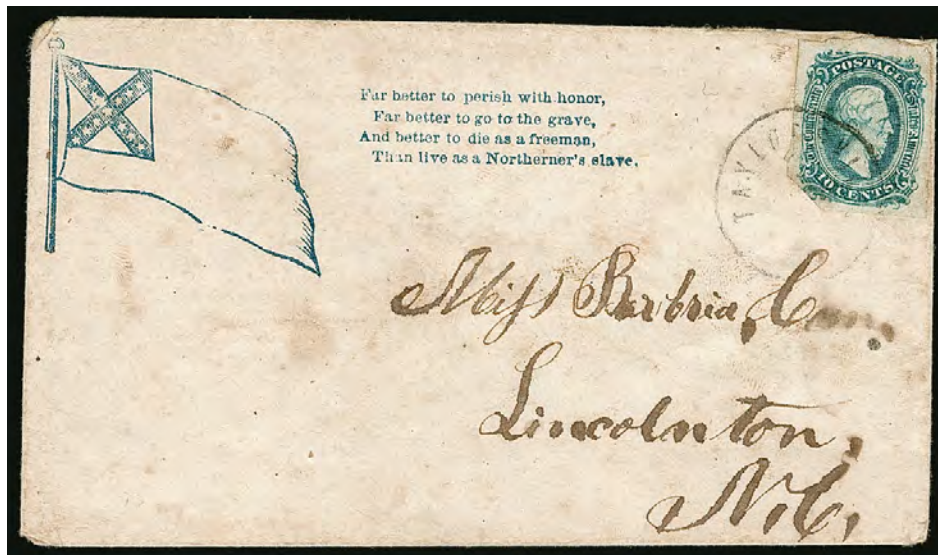 Far better to perish with honor,
Far better to go to the grave,
And better to die as a freeman,
Than live as a Northerner's slave.
POSTAGE
The Confederate States of America
10 CENTS
Miss Barbria
Lincolnton,
N.C.